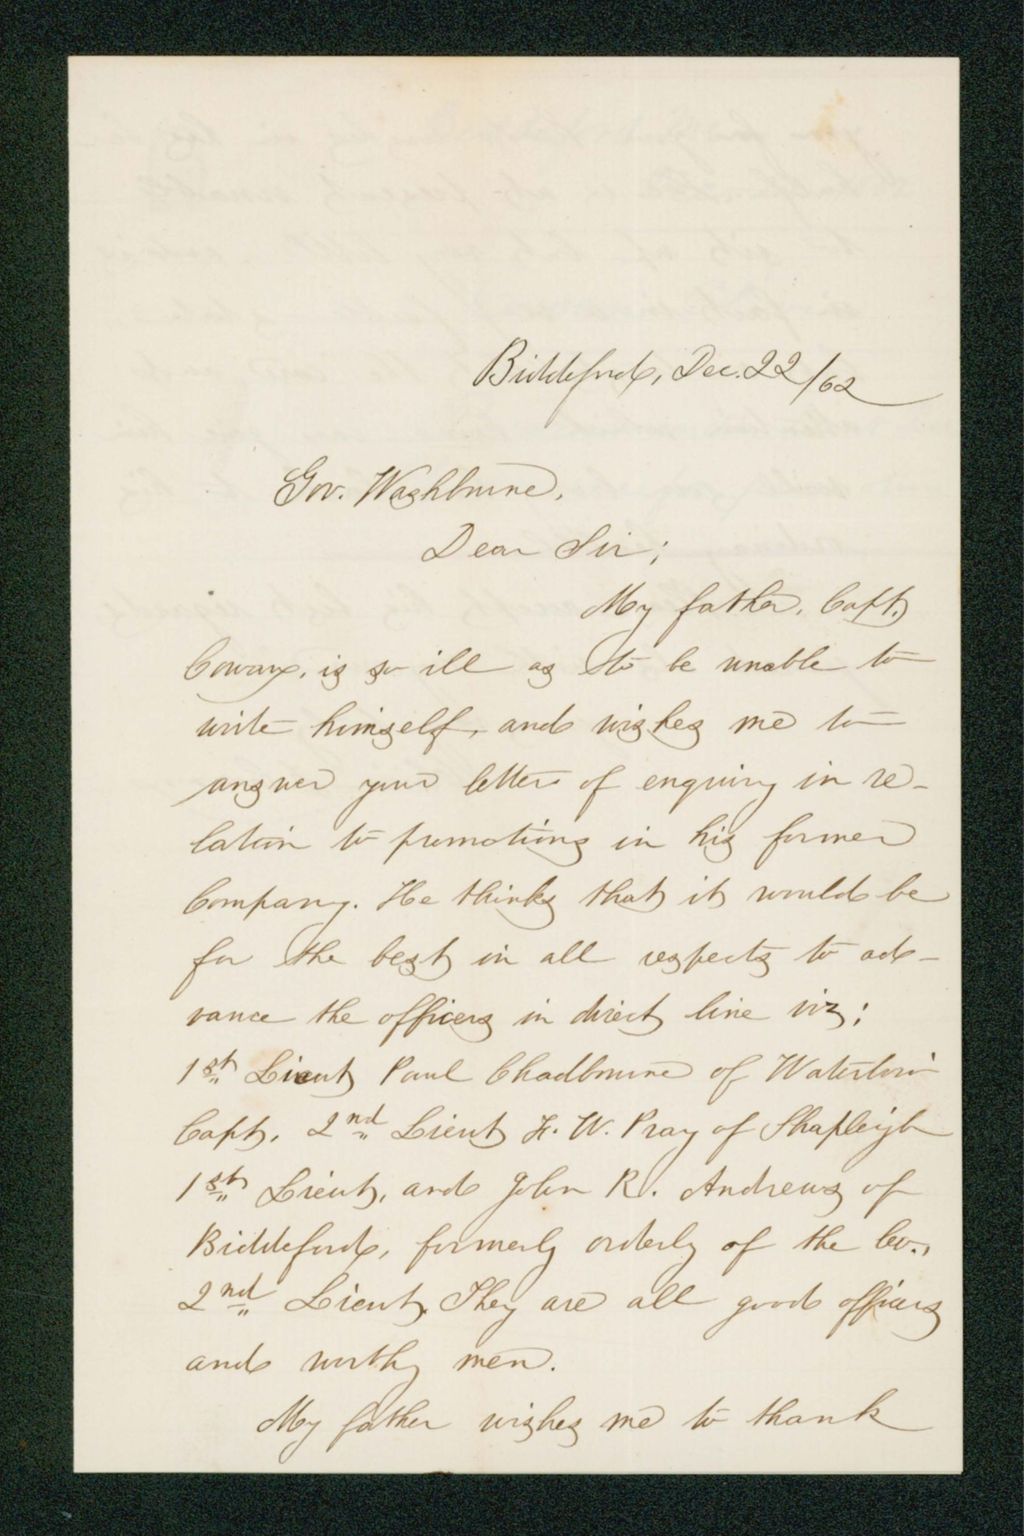 Biddeford, Dec. 22/62
Gov. Washburne,
Dear Sir;
My father, Capt.
Cowan, is so ill as to be unable to
write himself, and wishes me to
answer your letter of enquiry in re-
lation to promotions in his former
Company. He thinks that it would be
for the best in all respects to ad-
vance the officers in direct line viz;
1st Lieut Paul Chadbourne of Waterboro
Capt. 2nd Lieut F. W. Pray of Shapleigh
1st Lieut, and John R. Andrews of
Biddeford, formerly orderly of the Co.,
2nd Lieut. They are all good officers
and worthy men.
My father wishes me to thank